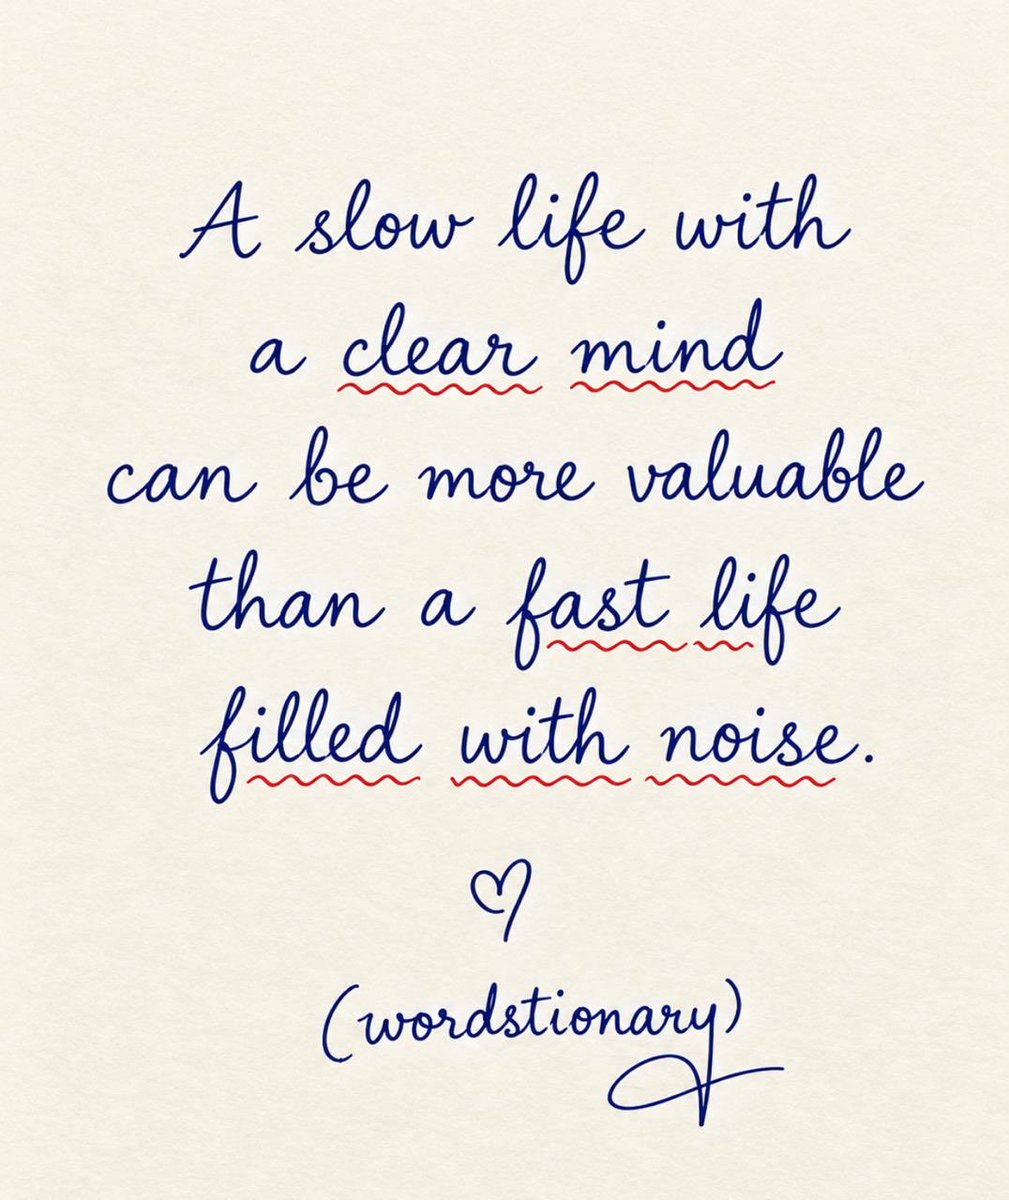 A slow life with
a clear mind
can be more valuable
than a fast life
filled with noise.
(wordstionary)